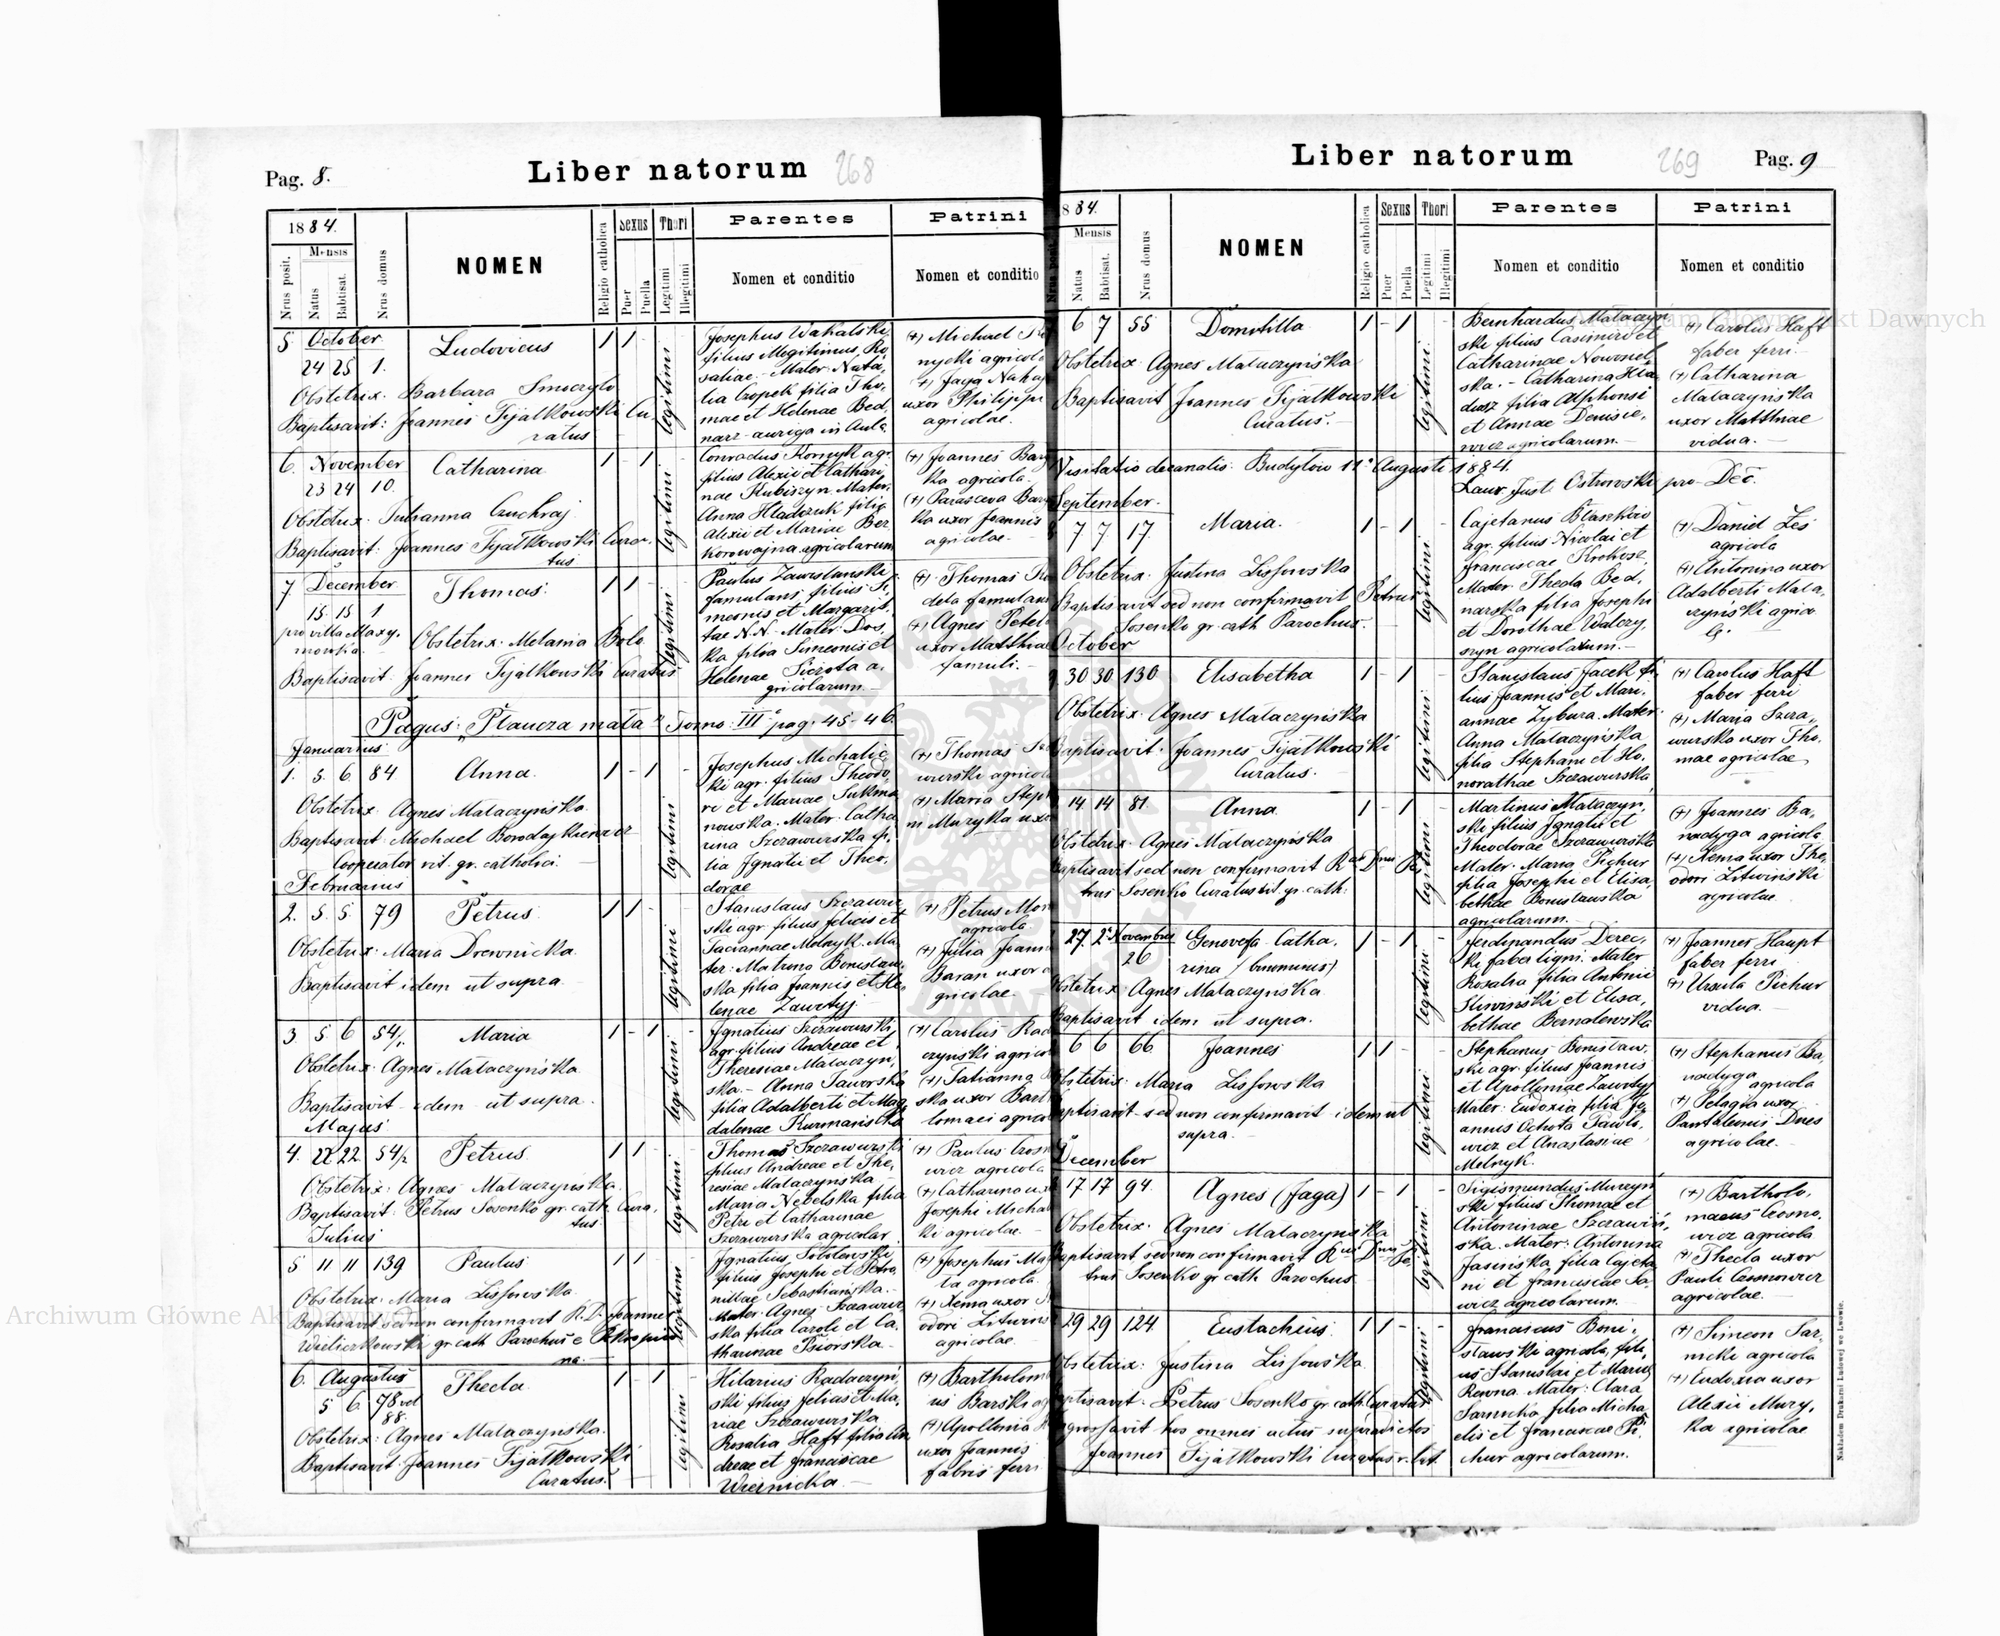 Pag. 8.
Liber natorum
268
1884.
Nrus posit.
Mensis
Natus
Babtisat.
Nrus domus
NOMEN
Religio catholica
Sexus
Puer
Puella
Thori
Legitimi
Illegitimi
Parentes
Nomen et conditio
Patrini
Nomen et conditio
5 October
24 25 1.
Ludovicus
Obstetrix: Barbara
Baptisavit: Joannes Fijałkowski Cu.
ratus
legitimi
Josephus
filius illegitimus Ro,
saliae. - Mater: Nata,
lia Czopek filia Tho,
mae et Helenae Bed,
narz - auriga in Aula
(+) Michael
nycki agricola
(+) Jaga
uxor Philippi
agricolae.
6. November
23 24 10.
Catharina
Obstetrix: Julianna Czuchraj
Baptisavit: Joannes Fijałkowski Cura.
tus
legitimi
Conradus Kornyk agr.
filius Alexii et Cathari,
nae Kubiszyn. Mater:
Anna Hladczuk filia
Alexii et Mariae Ber
agricolarum
(+) Joannes
ka agricola.
(+) Parasceva
ka uxor Joannis
agricolae.
7 December
15 15 1
Thomas.
pro villa Maxy,
mowka.
Obstetrix: Melania
Baptisavit: Joannes Fijałkowski Curatus
legitimi
Paulus Zawislanski
famulans filius Si,
meonis et Margari,
tae N.N. Mater: Dos,
ka filia Simeonis et
Helenae a,
gricolarum.
(+) Thomas
dela famulans
(+) Agnes
uxor Matthiae
famuli.
Pagus: "Płaucza mała" Tomo: III pag. 45-46.
Januarius
1. 5. 6 84
Anna.
Obstetrix: Agnes Mataczyńska
Baptisavit: Michael
Cooperator rit. gr. catholici.
legitimi
Josephus Michalic
ki agr. filius Theodo,
ri et Mariae
Mater: Catha
rina Szcrawurska fi,
lia Ignatii et Theo,
dorae
(+) Thomas
wurski agricola
(+) Maria
Muzyka uxor
Februarius
2. 5. 5. 79
Petrus.
Obstetrix: Maria Drewnicka.
Baptisavit idem ut supra.
legitimi
Stanislaus
ski agr. filius Felicis et
Taciannae Melnyk. Ma,
ter: Matrona Bonislaw,
ska filia Joannis et He,
lenae Zawrtyj
(+) Petrus
agricola
(+) Julia
Baran uxor a
gricolae.
3. 5 6 54/1.
Maria
Obstetrix: Agnes Mataczyńska.
Baptisavit idem ut supra.
legitimi
Ignatius Szcrawurski
agr. filius Andreae et
Theresiae Mataczyń,
ska. - Anna Jaworska
filia Adalberti et Mag,
dalenae
(+) Carolus
czynski agricola
(+) Tatianna
ska uxor
lomaei
Majus
4. 22 22 54/2
Petrus.
Obstetrix: Agnes Mataczyńska.
Baptisavit: Petrus Sosenko gr. cath. Cura,
tus.
legitimi
Thomas Szcrawurski
filius Andreae et The,
resiae Mataczyńska
Maria filia
Petri et Catharinae
Szcrawurska agricolar
(+) Paulus
wicz agricola
(+) Catharina
Josephi
ki agricolae.
Julius
5 11 11 139
Paulus
Obstetrix: Maria Lissowska.
Baptisavit sed non confirmavit R.D. Joannes
gr. cath Parochus e
na.
legitimi
Ignatius
filius Josephi et Petro,
nillae Sebastiańska.
Mater: Agnes
ska filia Caroli et Ca,
tharinae
(+) Josephus
ta agricola.
(+) Xenia uxor
odori
agricolae.
6. Augustus
5 6 78 vel
88.
Thecla.
Obstetrix: Agnes Mataczyńska.
Baptisavit: Joannes Fijałkowski
Curatus.
legitimi
Hilarius Radaczyń,
ski filius Felicis et Ma,
riae Szcrawurska
Rosalia Haft filia An
dreae et Franciscae
Wiernicka.
(+)
us Barski
(+) Apollonia
uxor Joannis
fabris ferri
Liber natorum
269
Pag. 9
1884.
Mensis
Natus
Babtisat.
Nrus domus
NOMEN
Religio catholica
Sexus
Puer
Puella
Thori
Legitimi
Illegitimi
Parentes
Nomen et conditio
Patrini
Nomen et conditio
6 7 55
Domitilla
Obstetrix: Agnes Mataczyńska
Baptisavit Joannes Fijałkowski
Curatus.
legitimi
Bernhardus Mataczyń
ski filius Casimiri et
Catharinae
ska. - Catharina Hła
dusz filia Alphonsi
et Annae Denisie,
wicz agricolarum.
(+) Carolus Haft
faber ferri.
(+) Catharina
Mataczyńska
uxor Matthiae
vidua.
Visitatio decanalis: Budyłow 11a Augusti 1884.
Laur. Just. Ostrowski pro-Dec.
September.
7 7 17.
Maria.
Obstetrix: Justina Lissowska
Baptisavit sed non confirmavit Petrus
Sosenko gr. cath Parochus.
legitimi
Cajetanus
agr. filius Nicolai et
Franciscae
Mater: Thecla Bed,
narska filia Josephi
et Dorotheae
szyn agricolarum.
(+) Daniel
agricola
(+) Antonina uxor
Adalberti Mata,
czyński agrico
lę.
October
30 30 130
Elisabetha
Obstetrix: Agnes Mataczyńska
Baptisavit: Joannes Fijałkowski
Curatus.
legitimi
Stanislaus Jacek fi,
lius Joannis et Mari,
annae Zybura. Mater:
Anna Mataczyńska
filia Stephani et Ho,
norathae Szcrawurska
(+) Carolus Haft
faber ferri
(+) Maria Szcra,
wurska uxor Tho,
mae agricolae
14 14 81.
Anna.
Obstetrix: Agnes Mataczyńska
Baptisavit sed non confirmavit Rdus Dnus Pe
trus Sosenko Curatus rit. gr. cath.
legitimi
Martinus Mataczyń,
ski filius Ignatii et
Theodorae Szcrawurska
Mater: Maria Pichur
filia Josephi et Elisa,
bethae Bonislawska
agricolarum.
(+) Joannes Ba,
nadyga agricola
(+) Xenia uxor The,
odori Litwiński
agricolae
27. 2 Novembris
26
Genovefa Catha,
rina (binominis)
Obstetrix: Agnes Mataczyńska
Baptisavit idem ut supra.
legitimi
Ferdinandus Derec,
ki faber ligni. Mater:
Rosalia filia Antonii
Sliwinski et Elisa,
bethae Bernalewska
(+) Joannes Haupt
faber ferri
(+) Ursula Pichur
vidua.
6 6 66
Joannes
Obstetrix: Maria Lissowska
Baptisavit sed non confirmavit idem ut
supra.
legitimi
Stephanus Bonisław,
ski agr. filius Joannis
et Apolloniae Zawrtyj
Mater: Eudoxia filia Jo,
annis Ochota Pawło,
wicz et Anastasiae
Melnyk.
(+) Stephanus Ba,
nadyga
agricola
(+) Pelagia uxor
Pantalemii Dnes
agricolae.
December
17 17 94.
Agnes (Jaga)
Obstetrix: Agnes Mataczyńska
Baptisavit sed non confirmavit Rdus Dnus Pe,
trus Sosenko gr. cath Parochus.
legitimi
Sigismundus
ski filius Thomae et
Antoninae
ska. Mater: Antonina
Jasińska filia Cajeta,
ni et Franciscae Sa,
wicz agricolarum.
(+) Bartholo,
maeus Crosno,
wicz agricola
(+) Thecla uxor
Pauli
agricolae.
29 29 124
Eustachius.
Obstetrix: Justina Lissowska
Baptisavit: Petrus Sosenko gr. cath. Curatus
Ingrossavit hos omnes actus supradictos
Joannes Fijałkowski Curatus r. lat.
legitimi
Franciscus Boni,
sławski agricola, fili,
us Stanislai et Mariae
Mater: Clara
Sarnicka filia Micha
elis et Franciscae Pi,
chur agricolarum.
(+) Simeon Sar,
nicki agricola
(+) Eudoxia uxor
Alexii Muzy,
ka agricolae
Nakładem Drukarni Ludowej we Lwowie.
Archiwum Główne Akt Dawnych